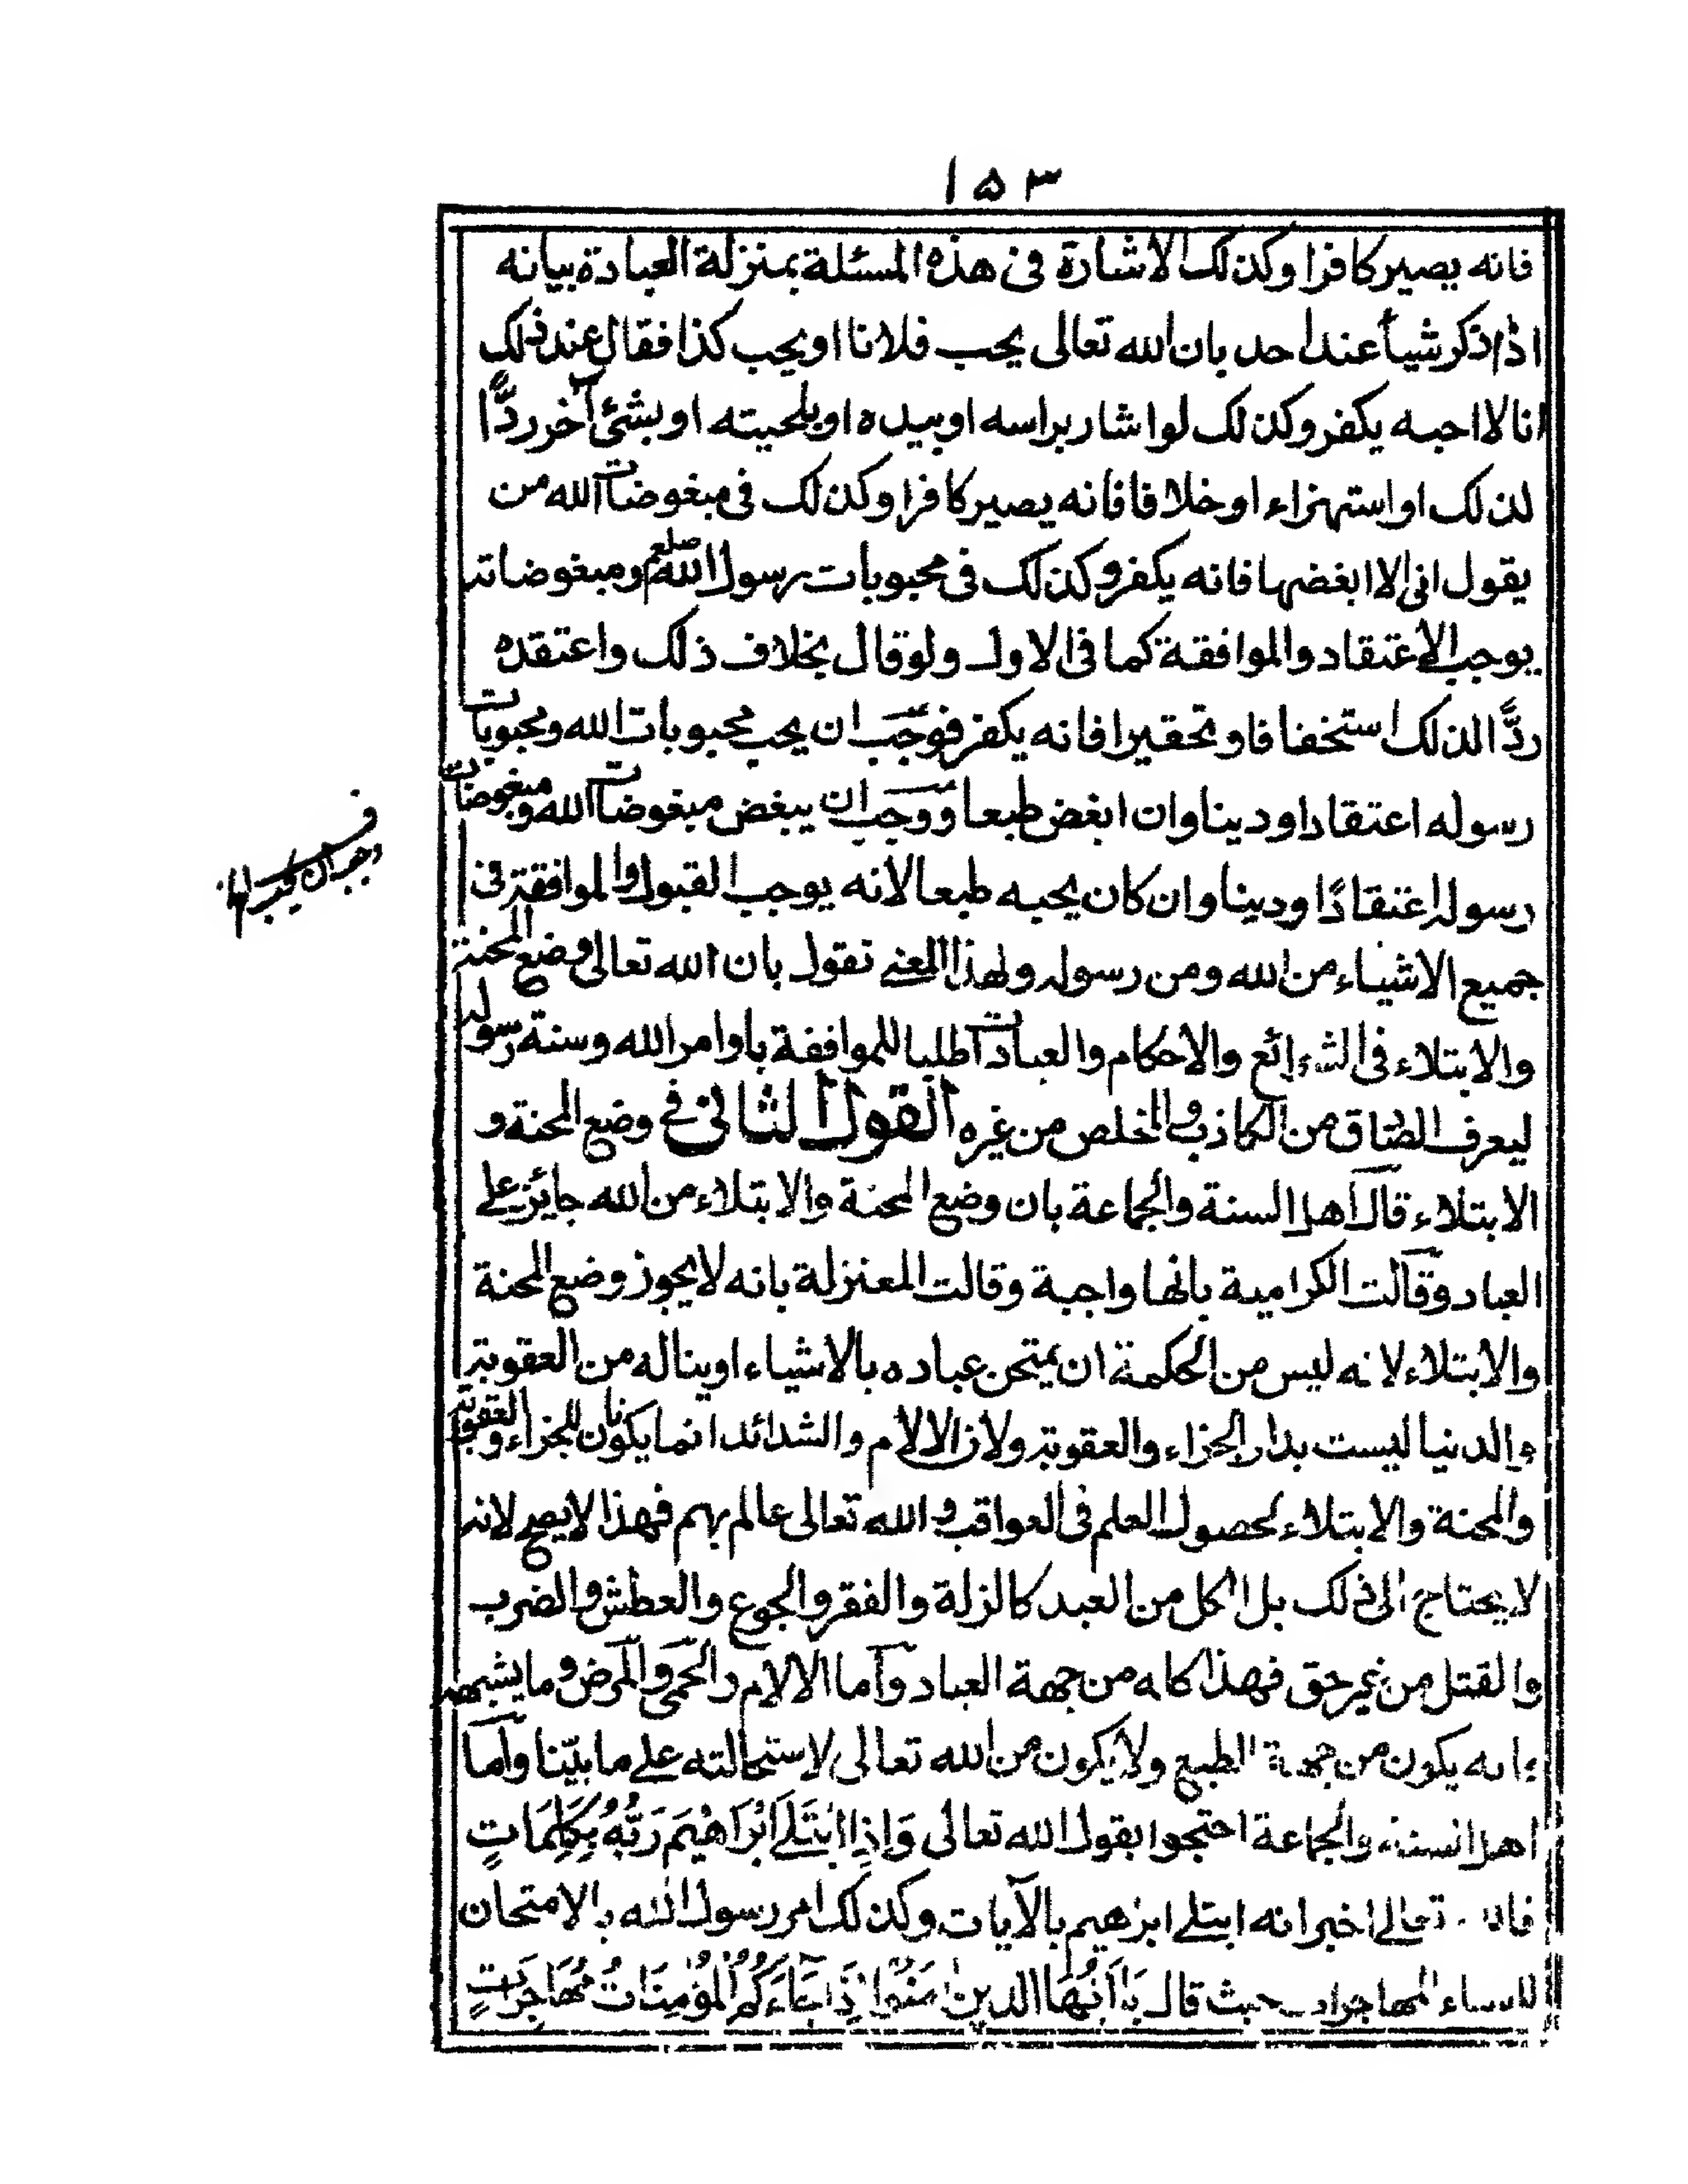 ۱۵۳
فانه يصير كافرا وكذلك الاشارة فى هذه المسئلة بمنزلة العبادة بيانه
اذا ذكر شيأ عند احد بان الله تعالى يحب فلانا او يحب كذا فقال عند ذلك
انا لا احبه يكفر وكذلك لو اشار براسه او بيده او بلحيته او بشئ آخر ردًّا
لذلك او استهزاء او خلافا فانه يصير كافرا وكذلك فى مبغوضات الله من
يقول انى لا ابغضها فانه يكفر وكذلك فى محبوبات رسول الله صلعم ومبغوضاته
يوجب الاعتقاد والموافقة كما فى الاول ولو قال بخلاف ذلك واعتقده
ردًّا لذلك استخفافا وتحقيرا فانه يكفر فوجب ان يحب محبوبات الله ومحبوبات
رسوله اعتقادا ودينا وان ابغض طبعا ووجب ان يبغض مبغوضات الله ومبغوضات
رسوله اعتقادًا ودينا وان كان يحبه طبعا لانه يوجب القبول والموافقة فى
جميع الاشياء من الله ومن رسوله ولهذا المعنے نقول بان الله تعالى وضع المحنة
والابتلاء فى الشرائع والاحكام والعبادات طلبا للموافقة باوامر الله وسنة رسوله
ليعرف الصادق من الكاذب والمخلص من غيره القول الثانى فے وضع المحنة و
الابتلاء قال اهل السنة والجماعة بان وضع المحنة والابتلاء من الله جائز علے
العباد وقالت الكرامية بانها واجبة وقالت المعتزلة بانه لا يجوز وضع المحنة
والابتلاء لانه ليس من الحكمة ان يمتحن عباده بالاشياء او يناله من العقوبة
والدنيا ليست بدار الجزاء والعقوبة ولان الالام والشدائد انما يكونان للجزاء والعقوبة
والمحنة والابتلاء لحصول العلم فى العواقب والله تعالى عالم بهم فهذا لا يصح لانه
لا يحتاج الى ذلك بل الكل من العبد كالزلة والفقر والجوع والعطش والضرب
والقتل من غير حق فهذا كله من جهة العباد وآما الالام والحمى والمرض وما يشبهه
فانه يكون من جهة الطبع ولا يكون من الله تعالى لاستحالته علے ما بيّنا وآما
اهل السنة والجماعة احتجوا بقول الله تعالى وَاِذِ ابْتَلَے اِبْرَاهِيْمَ رَبُّهُ بِكَلِمَاتٍ
تعالے اخبر انه ابتلے ابرٰهيم بالآيات وكذلك امر رسول الله بالامتحان
للنساء المهاجرات حيث قال يٰۤاَيُّهَا الَّذِيْنَ اٰمَنُوْا اِذَا جَآءَكُمُ الْمُؤْمِنَاتُ مُهَاجِرَاتٍ